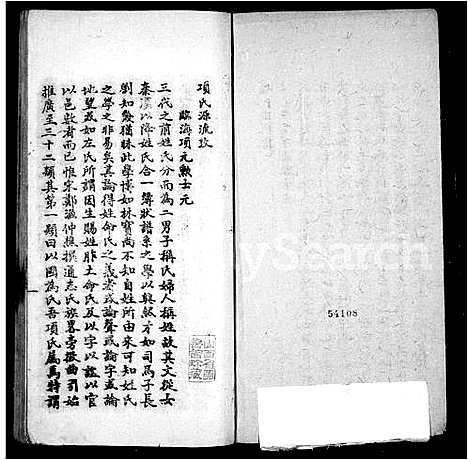 項氏源流攷
臨海項元勲士元
三代之前姓氏分而為二男子稱氏婦人稱姓故其文從女
秦漢以降姓氏合一簿狀譜系之學以興然才如司馬子長
劉知幾猶昧此學博如林寶尚不知自姓所由來可知姓氏
之學之非易矣其論得姓命氏之義者或論聲或論字或論
地望或如左氏所謂因生賜姓胙土命氏及以字以謚以官
以邑數者而已惟宋鄭漁仲撰通志氏族畧旁徵曲引始
推廣至三十二類其第一類曰以國為氏吾項氏屬焉特謂
54108